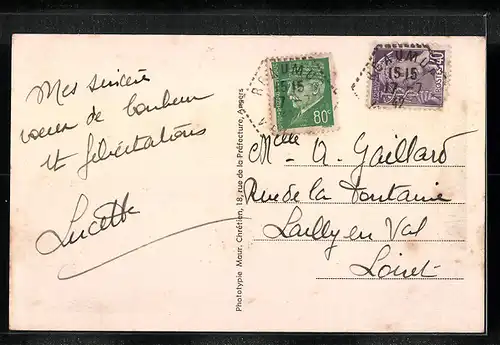 Mes sincère
voeux de bonheur
et félicitations
Lucette
Phototypie Maur. Chrétien, 19, rue de la Préfecture, Angers
80c
15-15
15-15
Melle A. Gaillard
Rue de la Fontaine
Lailly en Val
Loiret